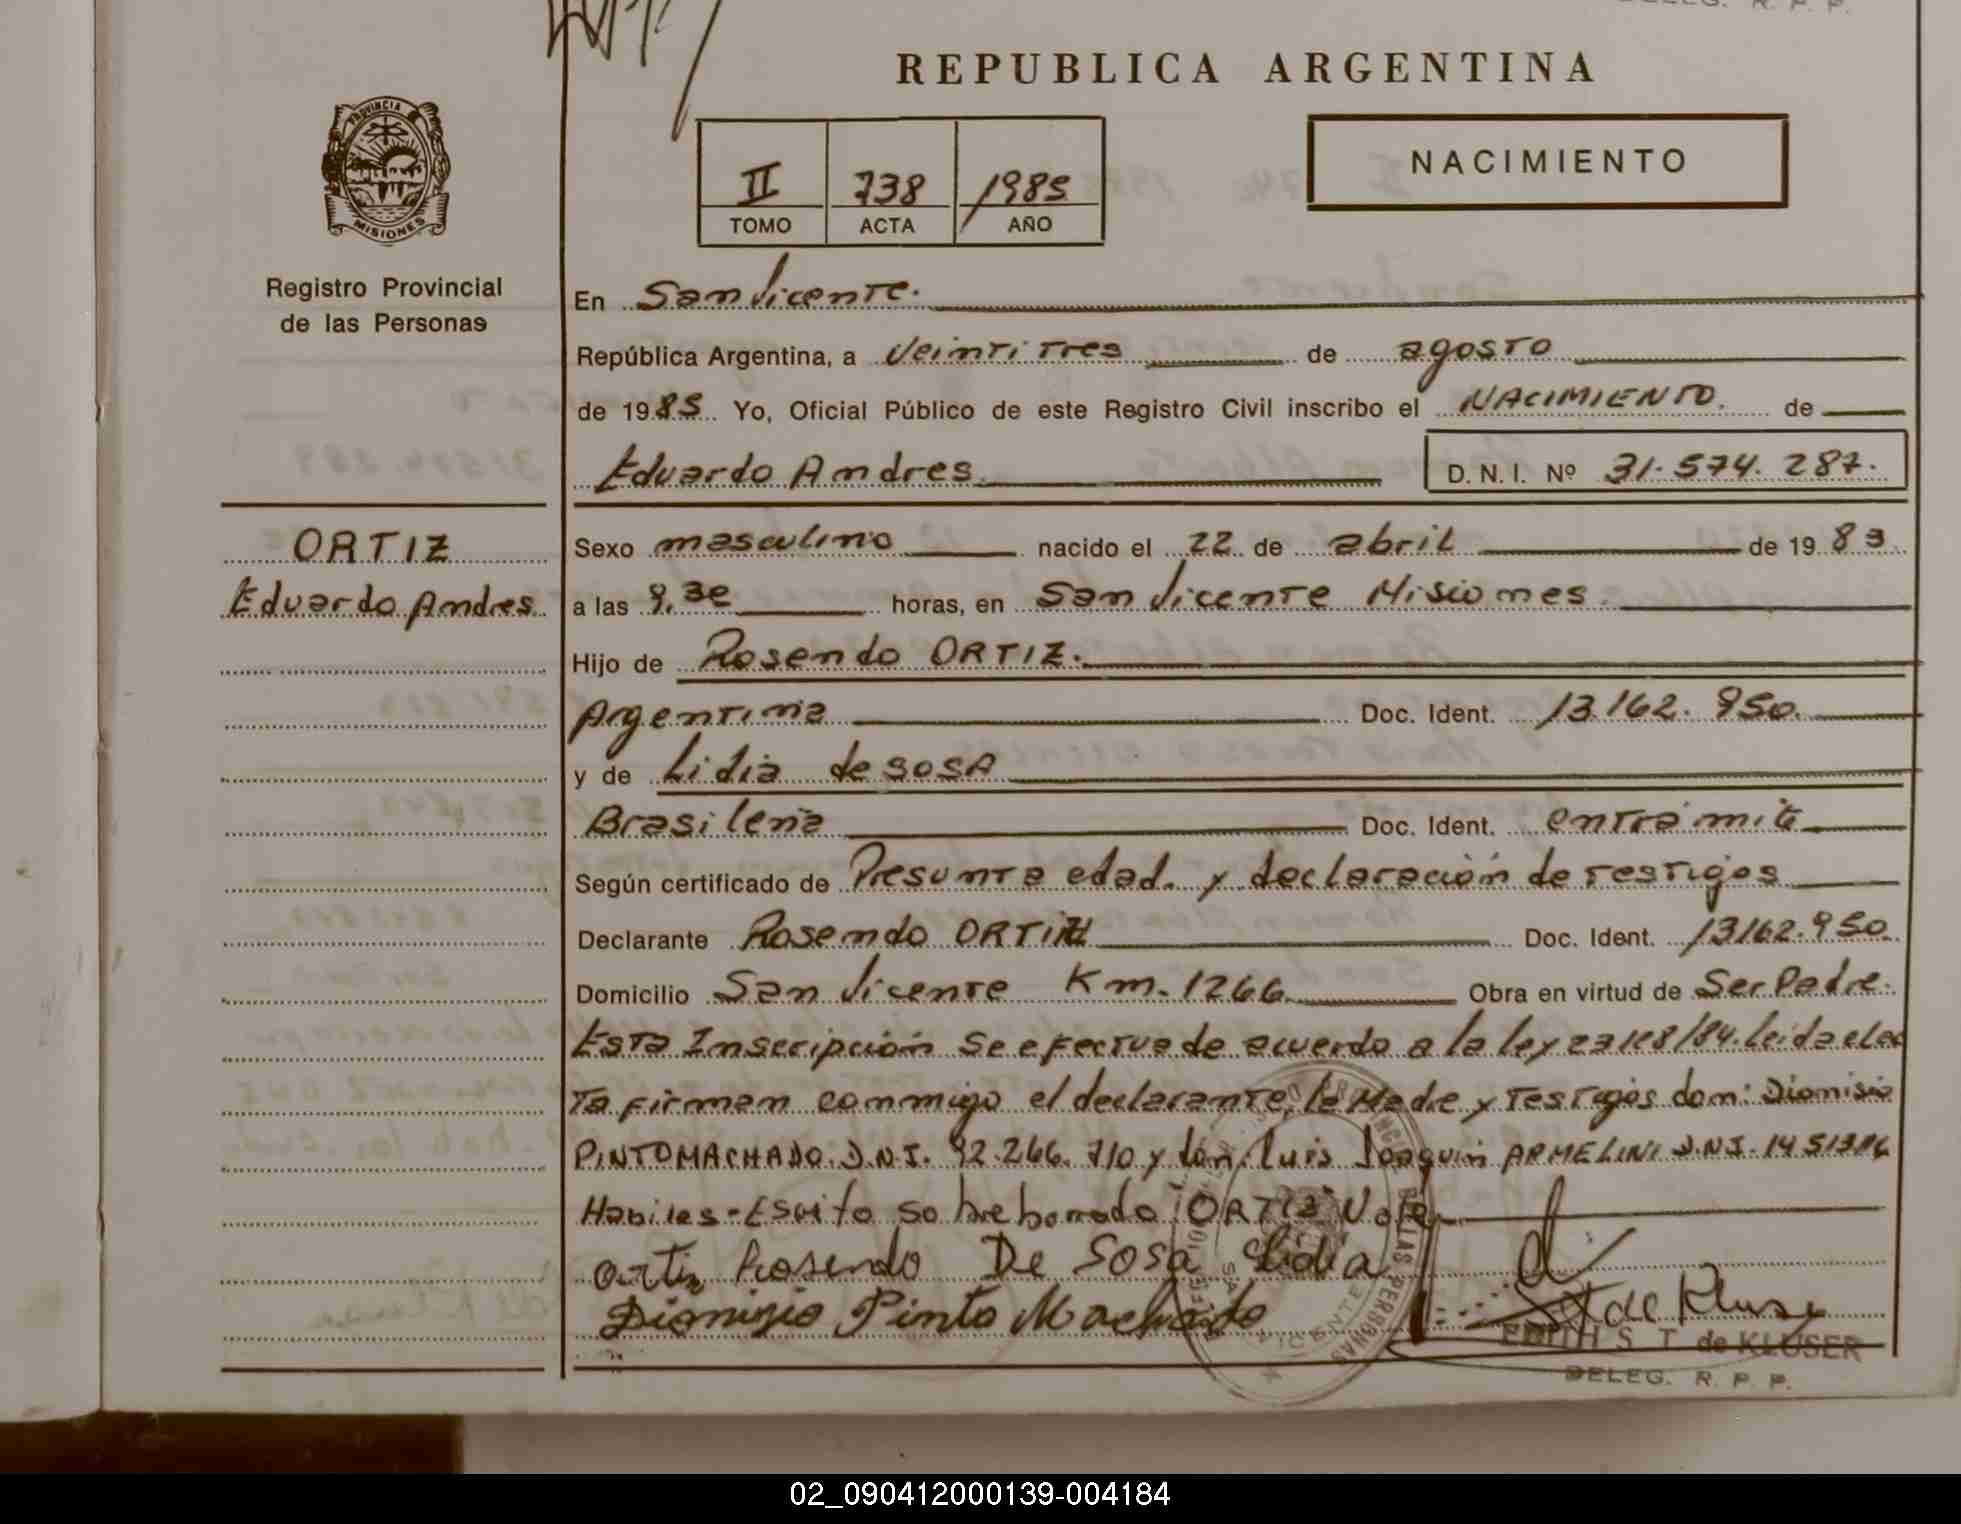 DELEG. R. P. P.
REPUBLICA ARGENTINA
PROVINCIA
MISIONES
II 738 1985
TOMO ACTA AÑO
NACIMIENTO
Registro Provincial
de las Personas
En San Vicente.
República Argentina, a Veintitres de agosto
de 1985 Yo, Oficial Público de este Registro Civil inscribo el NACIMIENTO. de
Eduardo Andres D. N. I. Nº 31.574.287.
ORTIZ
Eduardo Andres
Sexo masculino nacido el 22 de abril de 1983
a las 9,30 horas, en San Vicente Misiones
Hijo de Rosendo ORTIZ.
Argentina Doc. Ident. 13.162.950.
y de Lidia de SOSA
Brasileña Doc. Ident. en tramite
Según certificado de Presunta edad. y declaración de testigos
Declarante Rosendo ORTIZ Doc. Ident. 13162.950.
Domicilio San Vicente Km. 1266 Obra en virtud de Ser Padre.
Esta Inscripción se efectua de acuerdo a la ley 23128/84. leida el ac
ta firman conmigo el declarante, la Madre y Testigos don: Dionisio
PINTO MACHADO. D.N.I. 92.266.710 y don: Luis Joaquin ARMELINI D.N.I.
Habiles- Escrito sobre borrado "ORTIZ" Vale
Ortiz Rosendo De Sosa Lidia
Dionizio Pinto Machado
S T de Kluser
EDITH S. T. de KLUSER
DELEG. R. P. P.
02_090412000139-004184